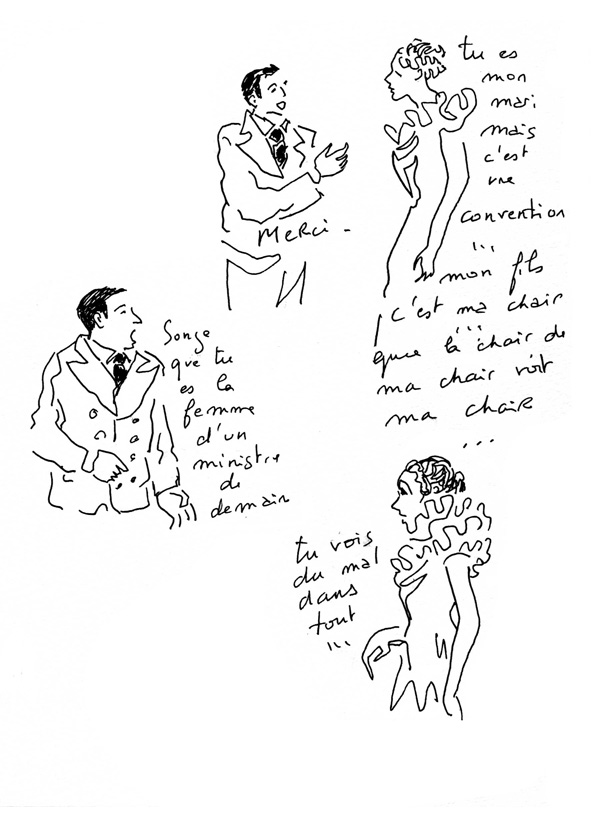 tu es
mon
mari
mais
c'est
une
convention
...
Merci -
mon fils
c'est ma chair
...
que la chair de
ma chair voit
ma chair
...
Songe
que tu
es la
femme
d'un
ministre
de
demain
tu vois
du mal
dans
tout
...